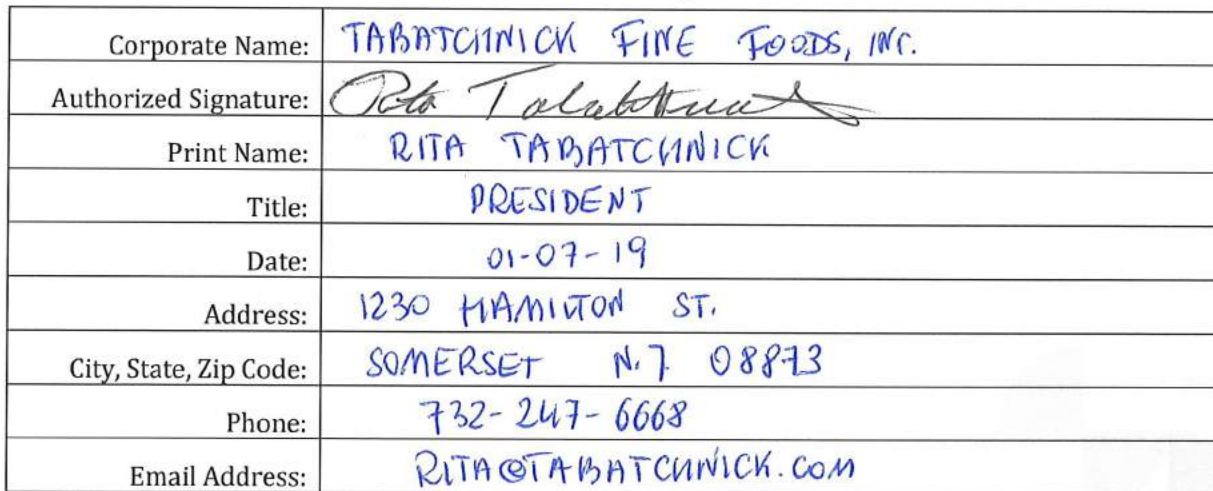 Corporate Name: TABATCHNICK FINE FOODS, INC.
Authorized Signature: Rita Tabatchnick
Print Name: RITA TABATCHNICK
Title: PRESIDENT
Date: 01-07-19
Address: 1230 HAMILTON ST.
City, State, Zip Code: SOMERSET N.J 08873
Phone: 732-247-6668
Email Address: RITA@TABATCHNICK.COM